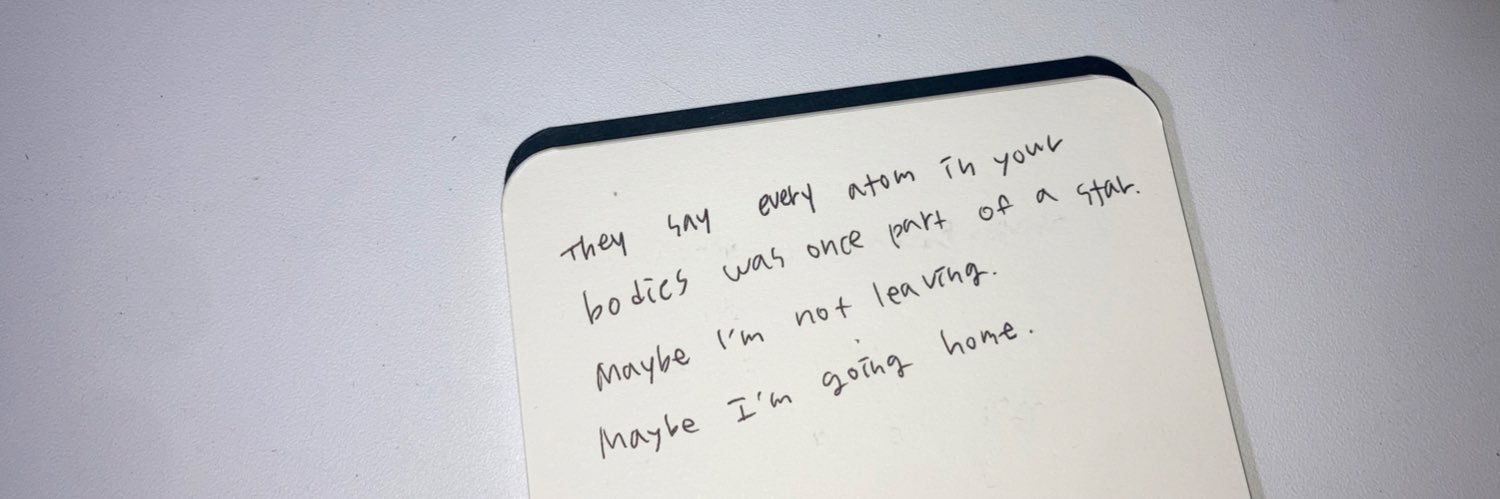 They say every atom in your
bodies was once part of a star.
Maybe I'm not leaving.
Maybe I'm going home.